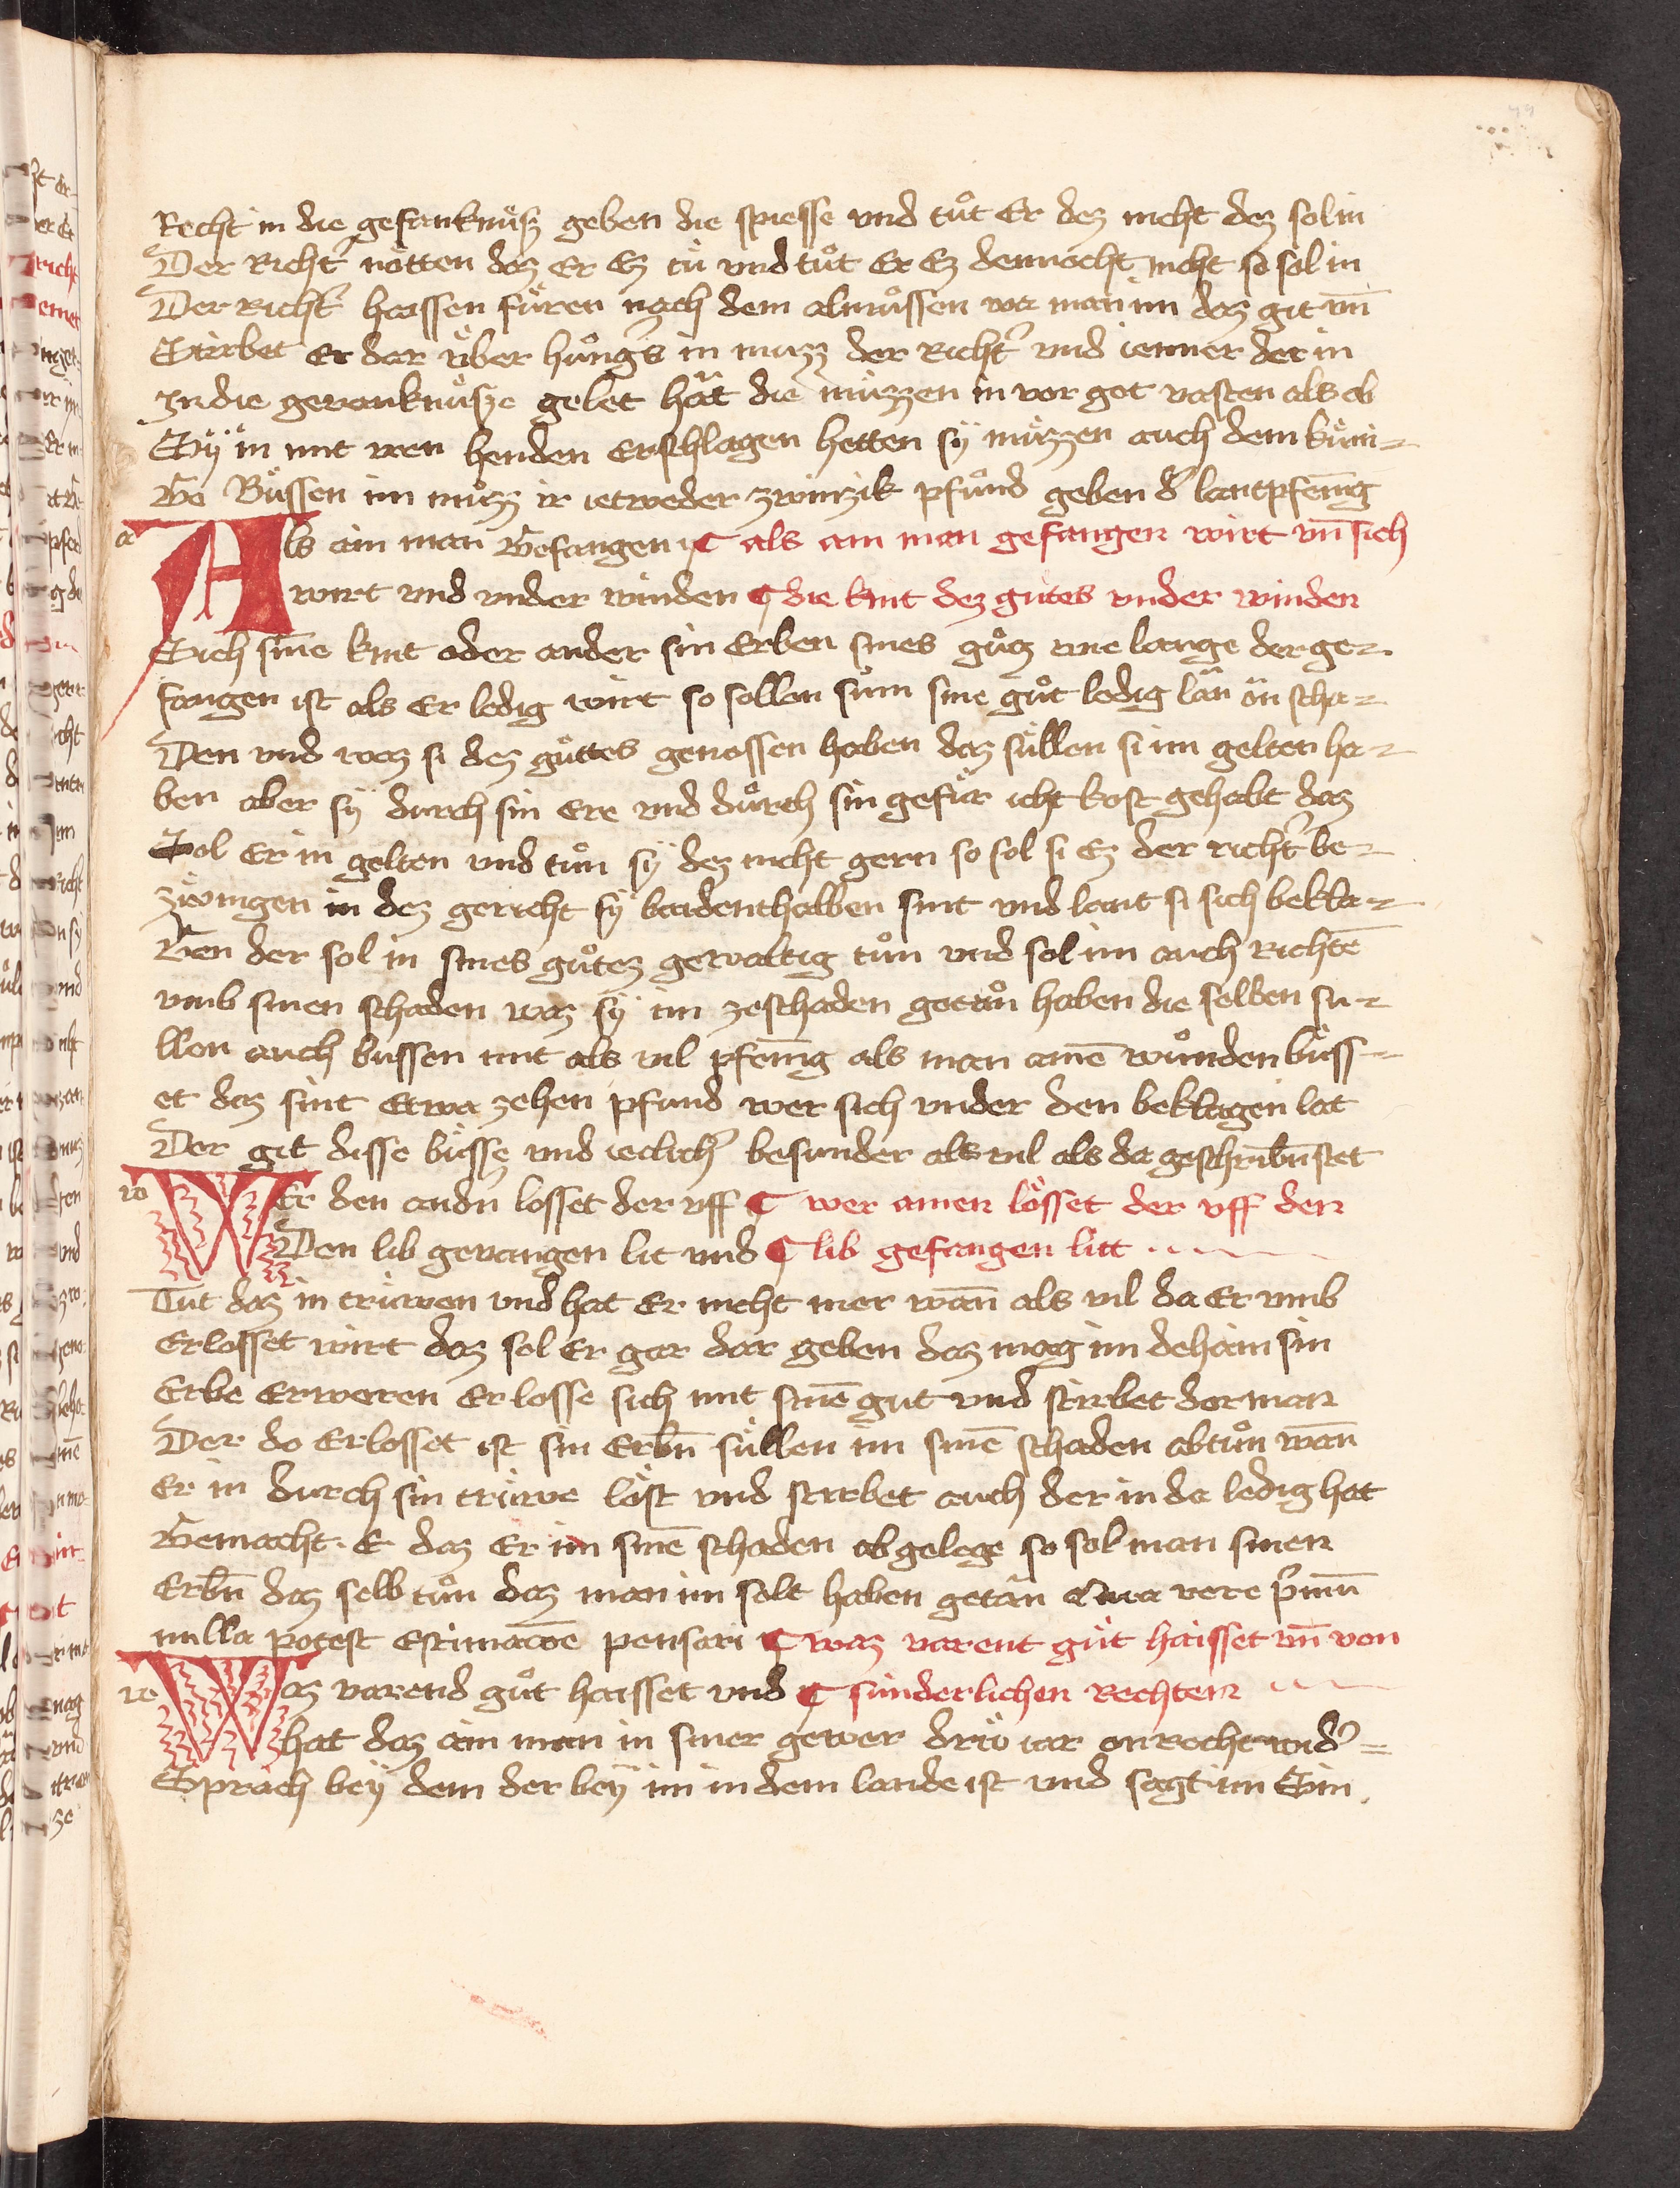 Recht in die gefanknüß geben die spiesse vnd tuͦt Er dez nicht dez sol in
Der Richtͬ nötten daz Er Ez tü vnd tuͦt Er Ez dennocht nicht so sol in
Der Richtͬ haissen füren nach dem almuͦssen wa man im daz git vn̄
Stirbet Er dar über hungͬs in muzz der Richtͬ vnd ienner der in
Jn die gevanknüsze gelet hät die müzzen in vor got vasten als ob
Sÿ in mit iren henden Erschlagen hetten sÿ müzzen auch dem küni-
Ge Büssen im muͦzz ir ietweder zwinzik pfund geben dͬ lantpfennig
a
Als ain man Gefangen ¶ als ain man gefangen wirt vn̄ sich
wirt vnd vnder winden ¶ die kint dez gütes vnder winden
Sich sine kint oder ander sin Erben sines guͦtz wie lange der ge-
fangen ist als Er ledig wirt so sollen süim sine guͦt ledig län ön scha-
Den vnd waz si dez guͦttes genossen haben daz süllen si im gelten ha-
ben aber sÿ durch sin Ere vnd durch sin gefür icht kost gehabt daz
Sol Er in gelten vnd tuͦn sÿ dez nicht gern so sol si Ez der richtͬ be-
zwingen in dez gericht sÿ baidenthalben sint vnd laut si sich bekla-
Gen der sol in sines guͦtez gewaltig tuͦn vnd sol im auch Richtē
vmb sinen schaden waz sÿ im zeschaden getan haben die selben sü-
llen auch bussen mit als vil pfennig als man ainē wunden büss-
et daz sint Etwa zehen pfund wer sich vnder den beklagen lat
Der git disse büsse vnd ieclichͬ besunder als vil als da geschribn̄ stet
w
WEr den andn̄ losset der vff ¶ wer ainen lösset der vff den
Den lib gevangen lit vnd ¶ lib gefangen litt
Tüt daz in triuwen vnd hat Er nicht mer wan̄ als vil da Er vmb
Erlosset wirt daz sol Er gar dar geben daz mag im dehain sin
Erbe Erweren Er losse sich mit sinē gut vnd stirbet der man
Der do Erlosset ist sin Erbn̄ süllen im sinē schaden abtuͦn wan̄
Er in durch sin triuwe löst vnd stirbet auch der in da ledig hat
Gemacht. E daz Er im sinē schaden ab gelege so sol man sinen
Erbn̄ daz selb tuͦn daz man im solt haben getän Quia vere pͬmiū
nulla potest Estimacōe pensari ¶ waz varent güt haisset vn̄ von
w
Waz varend guͦt haisset vnd ¶ sunderlichen Rechten
hat daz ain man in siner gewer drü iar on Recht widͬ-
Sprach beÿ dem der beÿ im in dem lande ist vnd sagt im Ein